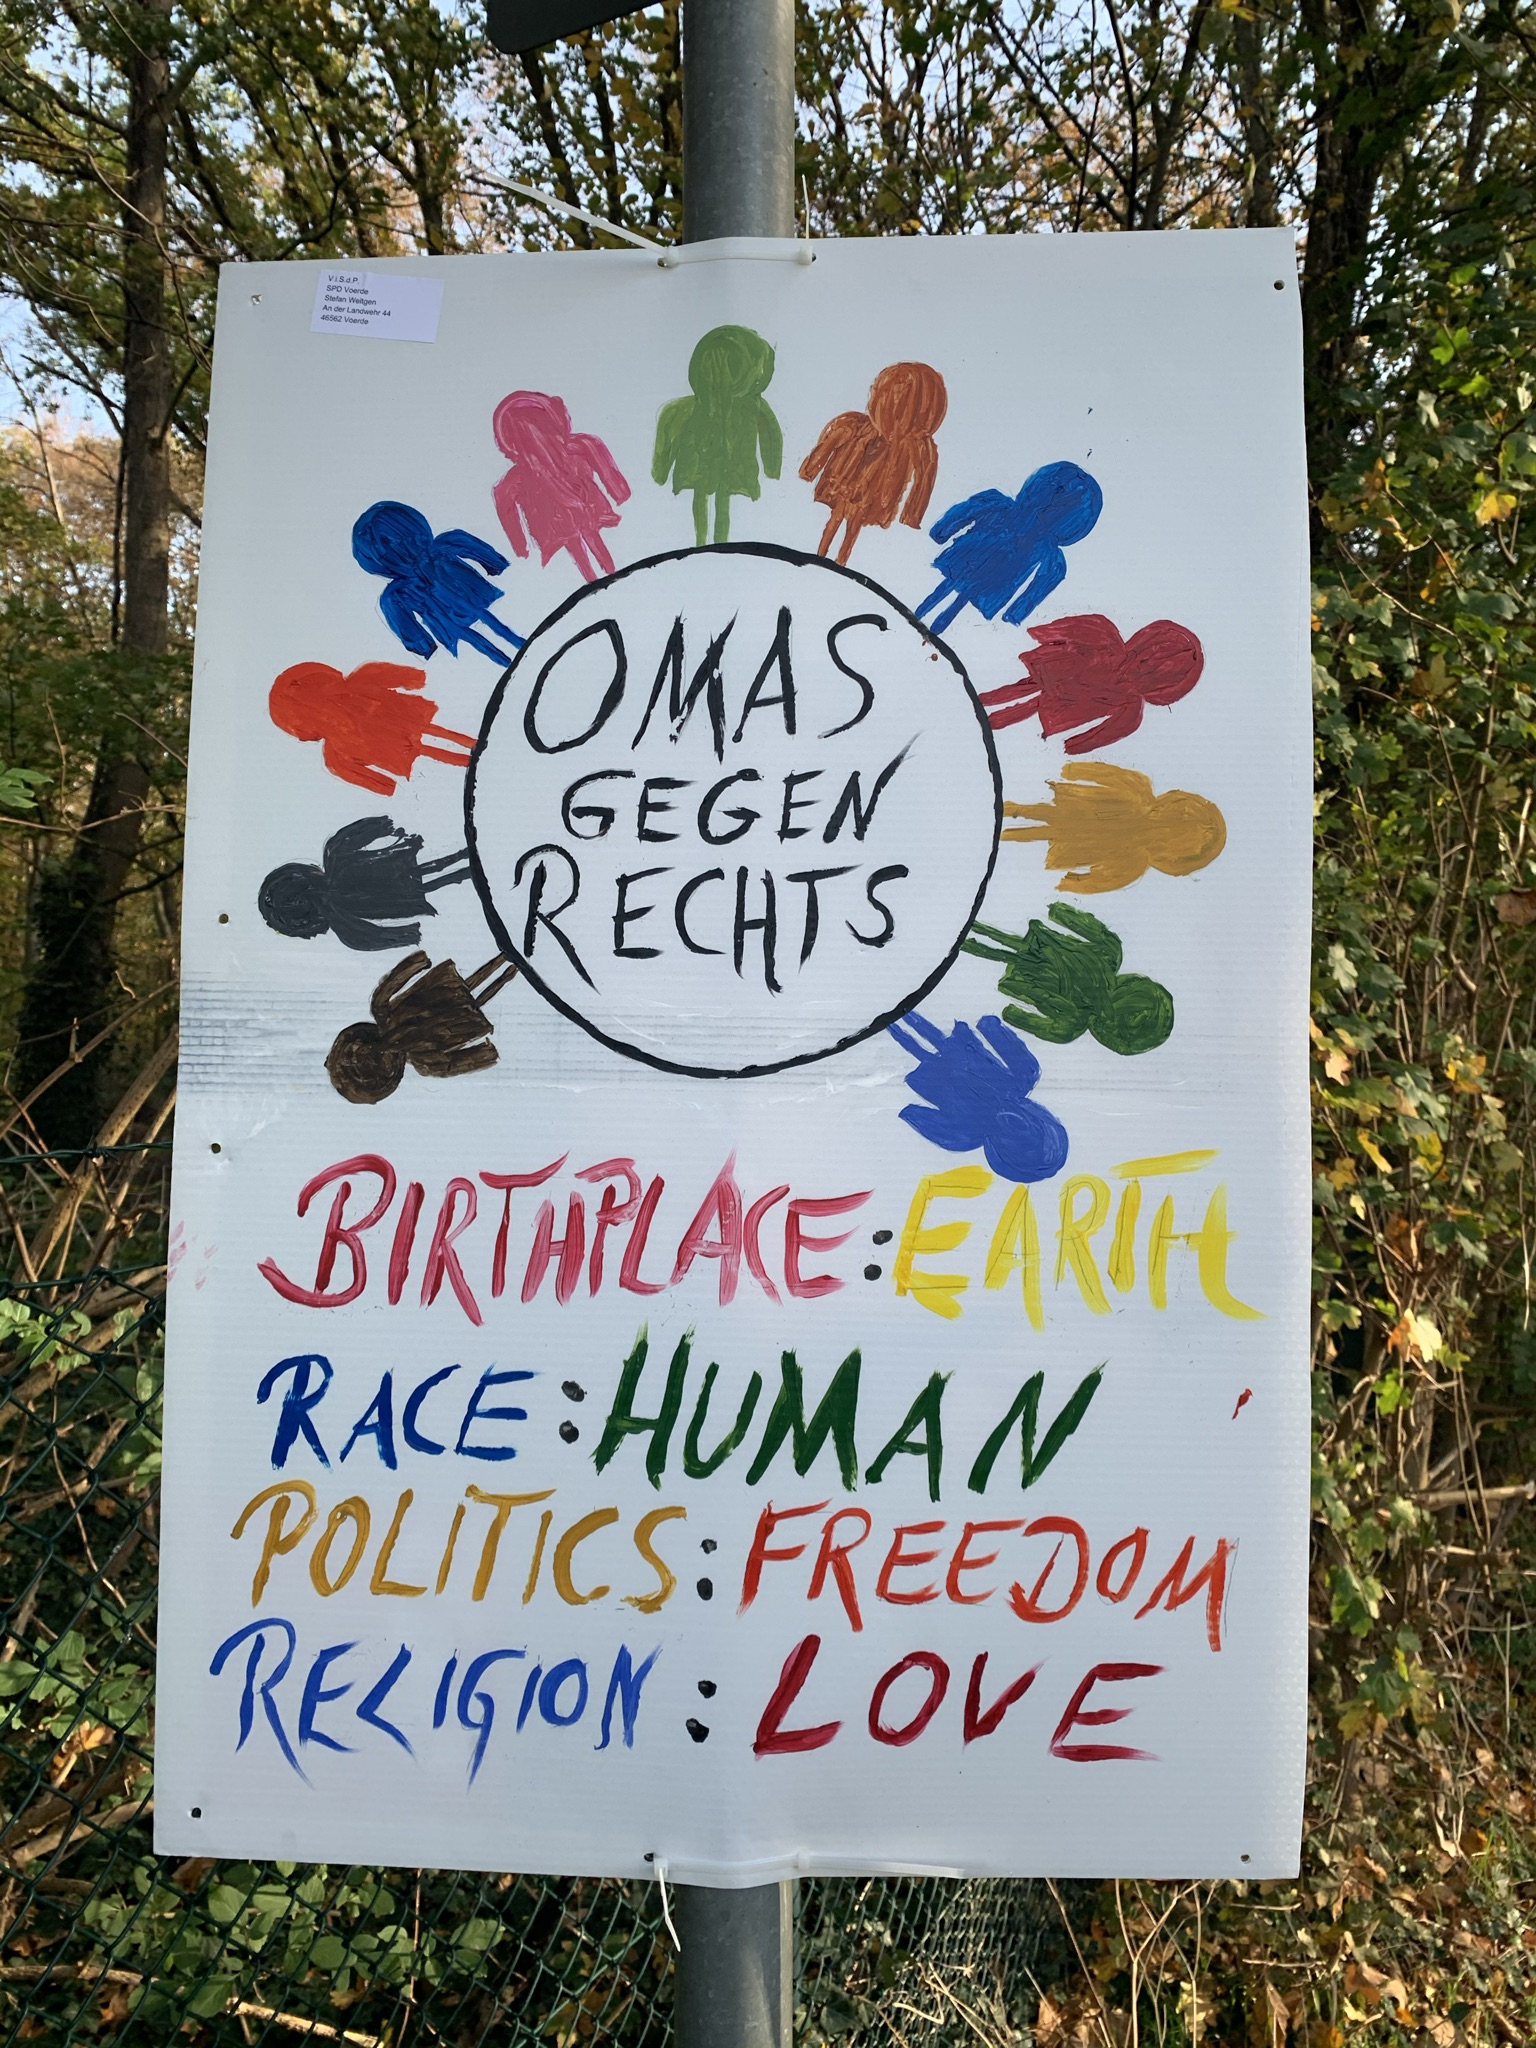 V.i.S.d.P.
SPD Voerde
Stefan Weltgen
An der Landwehr 44
46562 Voerde
OMAS
GEGEN
RECHTS
BIRTHPLACE: EARTH
RACE: HUMAN
POLITICS: FREEDOM
RELIGION: LOVE